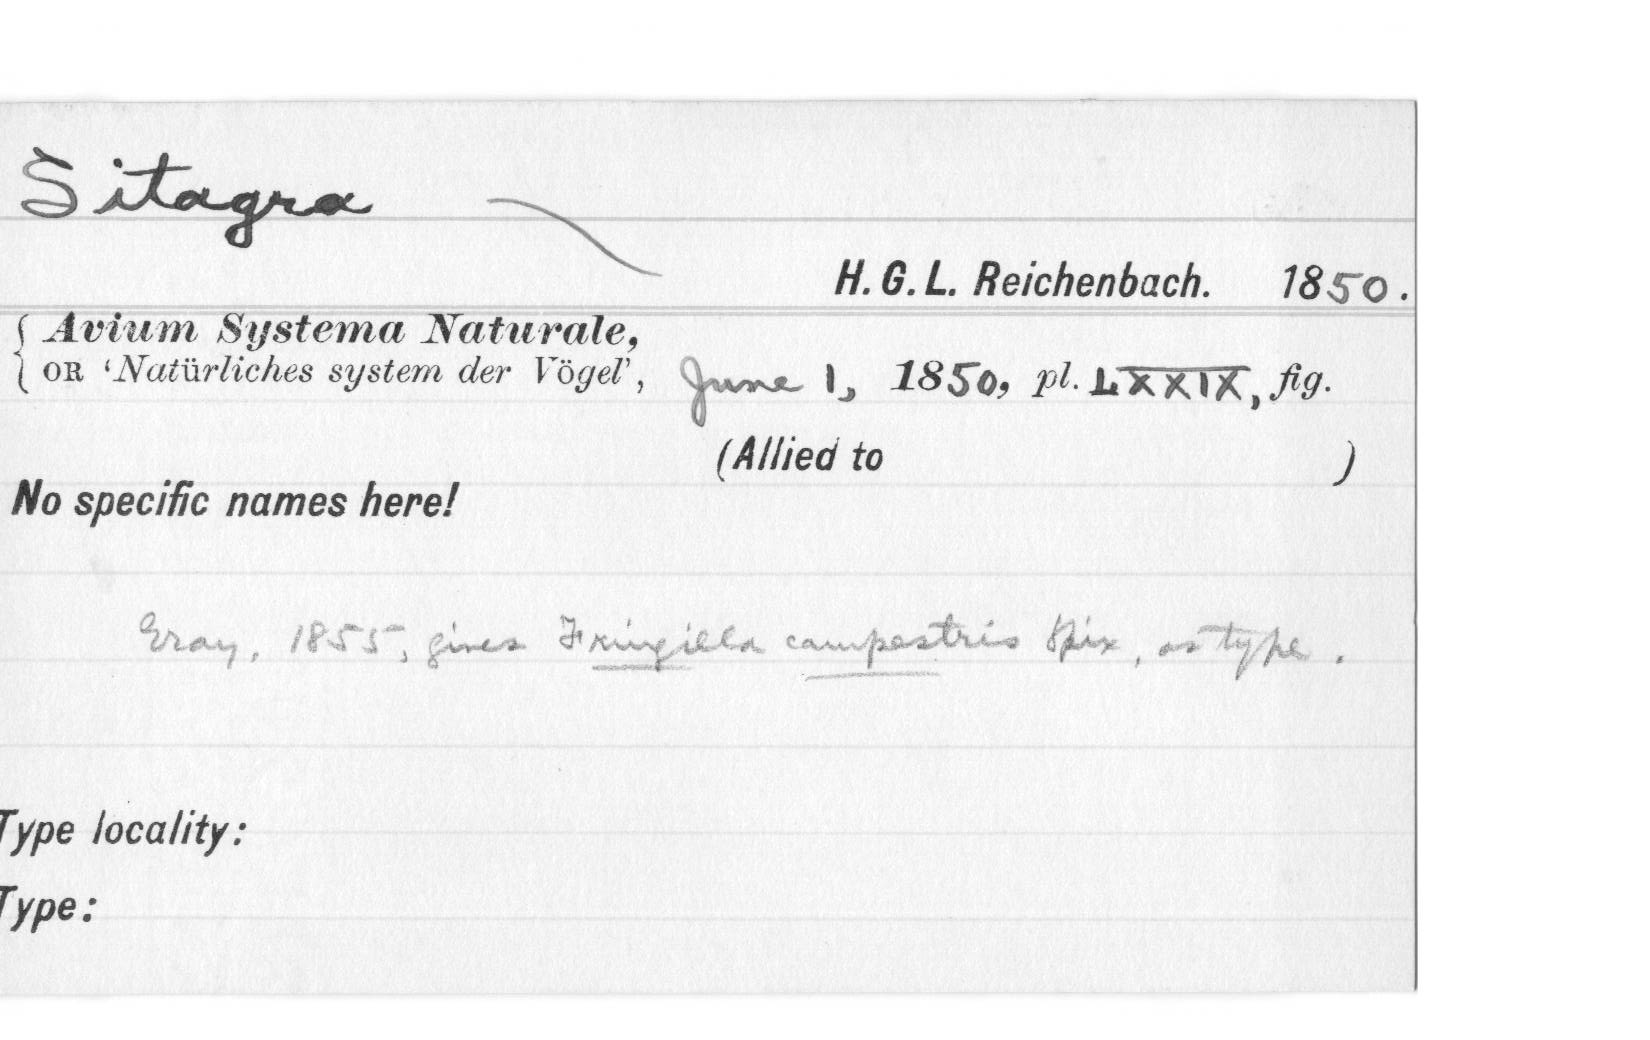 Sitagra
H. G. L. Reichenbach. 1850.
Avium Systema Naturale,
OR 'Natürliches system der Vögel', June 1, 1850, pl. LXXIX, fig.
(Allied to )
No specific names here!
Gray, 1855, gives Fringilla campestris Spix, as type.
Type locality:
Type: